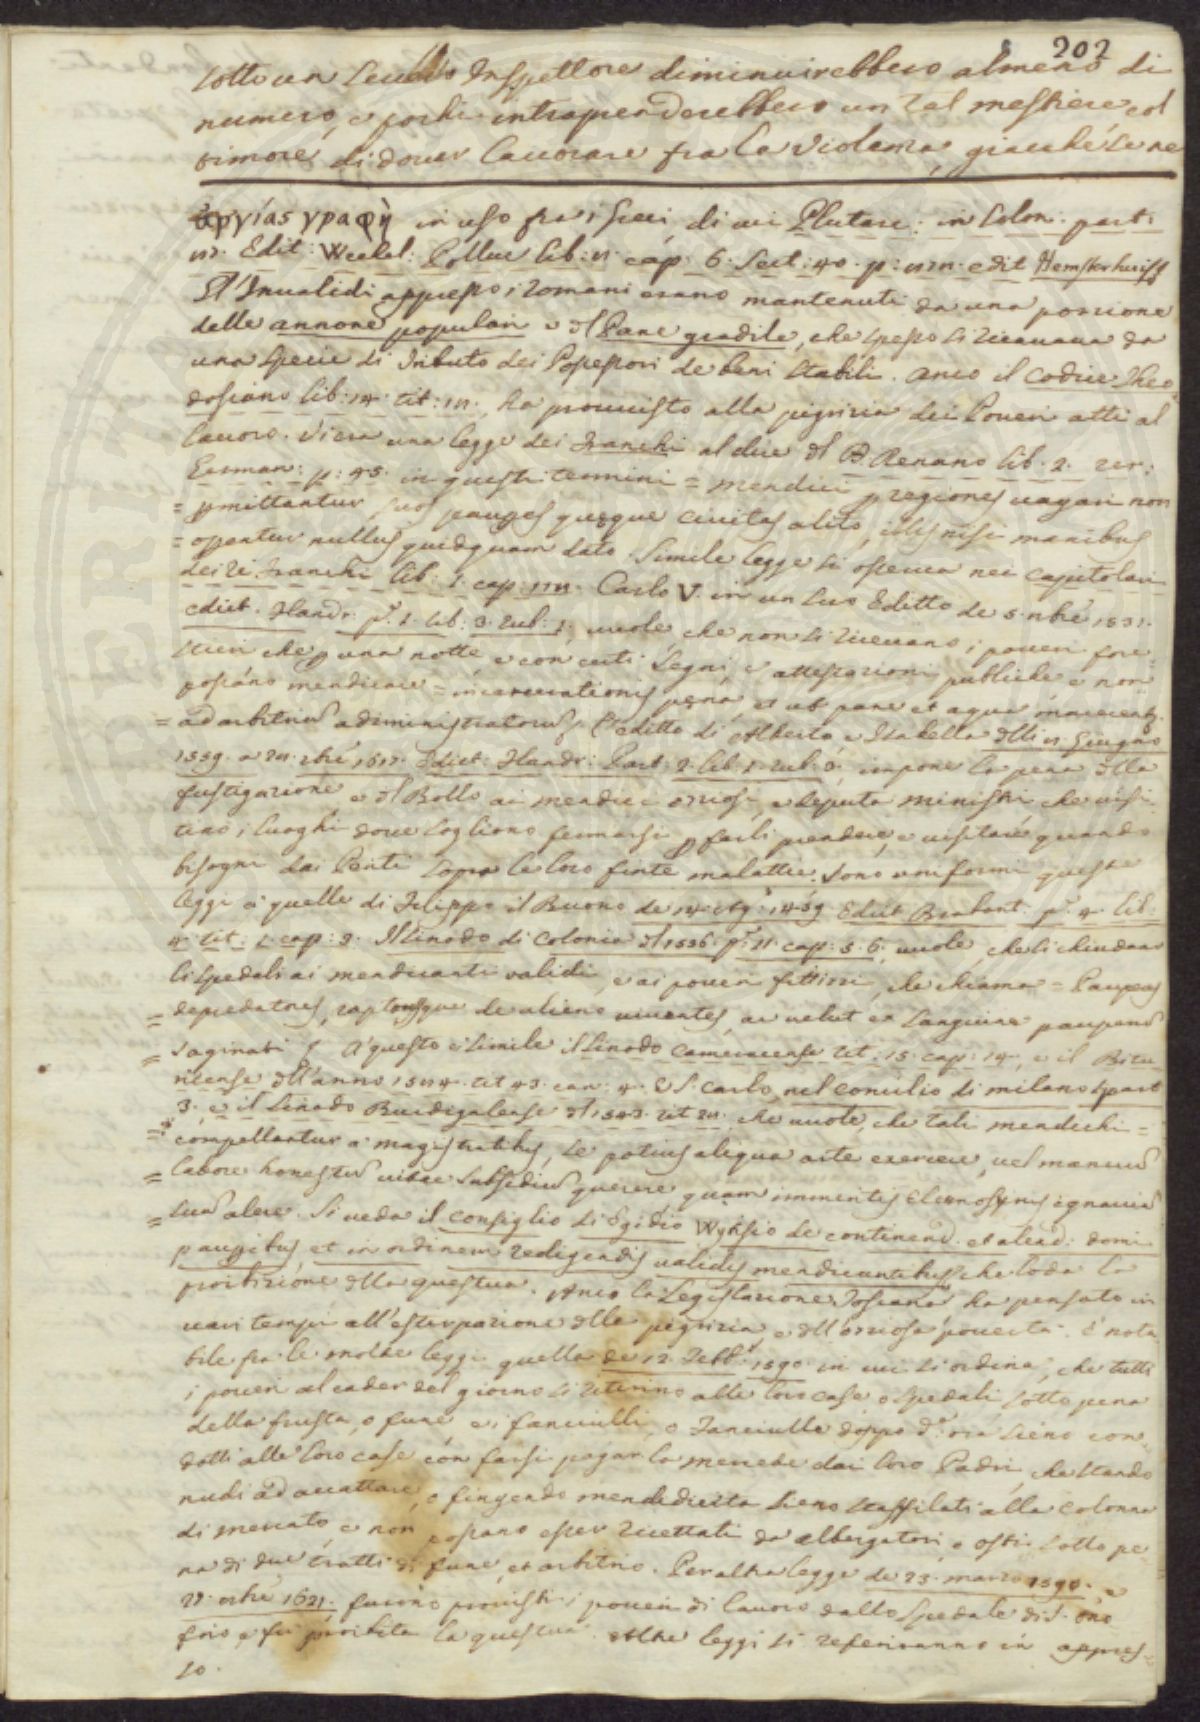 202
sotto un severo Inspettore diminuirebbero almeno di
numero, e pochi intraprenderebbero un tal mestiere, col
timore di dover lavorare fra la violenza, giacché le ne
ἀργίας γραφὴ in uso fra i Greci, di cui Plutarc: in Solon. part:
Edit: Weckel: Pollux lib: cap: 6. Sect: 40. p: edit Hemsterhuisſ
Gl'Invalidi appresso i Romani erano mantenuti da una porzione
delle annone popolari e dl Pane gradile, che spesso si ricavava da
una specie di Tributo dei Possessori de beni stabili. Anco il Codice Theo
dosiano lib: 14. tit: ha provvisto alla pigrizia dei Poveri atti al
lavoro. Vi era una legge dei Franchi al dire dl B. Renano lib. 2. rer:
German: p: 95. in questi termini = mendici p regiones vagari non
= pmittantur suos paupes quęque civitas alito, illis nisi manibus
= opentur nullus quidquam dato. Simile legge si osserva nei capitolari
dei Re Franchi lib: 1. cap: Carlo V. in un suo Editto de 5. nbre 1531.
edict. Flandr. p. 1. lib: 3. rub: 1. vuole che non si ricevano i poveri fore
stieri che p una notte, e con certi segni, e attestazioni publiche e non
possano mendicare = incarcerationis pęna, et ub pane et aqua
= ad arbitriũ administratorũ. L'editto di Alberto e Isabella dlli Giugno
1559. e 28. 7bre 1617. Edict: Flandr: Part: 2. lib. 1. rub: 6. impone la pena dlla
fustigazione e dl Bollo ai mendici oziosi, e deputa ministri che visi
tino i luoghi dove sogliono fermarsi p farli prendere, e visitare quando
bisogni dai Periti sopra le loro finte malattie. Sono uniformi queste
leggi a quelle di Filippo il Buono de 14. Ag: 1459. Edict Brabant. p. 4. lib.
4. tit: 1. cap: 2. Il Sinodo di Colonia dl 1536. p. 11. cap: 5. 6. vuole, che si chiudano
li spedali ai mendicanti validi, e ai poveri fittizzi, che chiama = Paupeũ
= depredatres, raptoresque de alieno viventes, ac velut ex sanguine pauperũ
= saginati. A questo è simile il Sinodo Cameracense tit: 15. cap: 14, e il Bitu
ricense dll'anno 1584. tit 43. can: 4. e S. Carlo nel concilio di milano part
3. e il Sinodo Burdigalense dl 1583. tit che vuole, che tali mendichi =
= compellantur a magistratibus, se potius aliqua arte exercere, vel manuũ
= labore honestũ vitae subsidiũ querere, quam immeritis eleemosynis ignaviã
= suã alere. Si veda il consiglio di Egidio Wytsio de continend. et alend: domi
paupibus, et in ordinem redigendis validis mendicantibus che loda la
proibizione dlla questua. Anco la Legislazione Toscana ha pensato in
vari tempi all'estirpazione dlla pigrizia, e dll'oziosa povertà. È nota
bile fra le molte leggi quella de 12. Febb: 1590. in cui si ordina, che tutti
i poveri al cader del giorno si ritirino alle loro case, o spedali, sotto pena
della frusta, o fune, e i fanciulli, o fanciulle doppo d.a ora sieno con
dotti alle loro case con farsi pagar la mercede dai loro Padri, che stando
nudi ad accattare, o fingendo mendicità sieno staffilati alla colonna
di mercato, e non possano esser ricettati da albergatori, e osti. sotto pe
na di due tratti di fune, et arbitrio. Per altra legge de 23. marzo 1590. e
27. ottbre 1621. furono provvisti i poveri di lavoro dallo Spedale di S. Ono
frio, e fu proibita la questua. Altre leggi si referiranno in appres=
so.